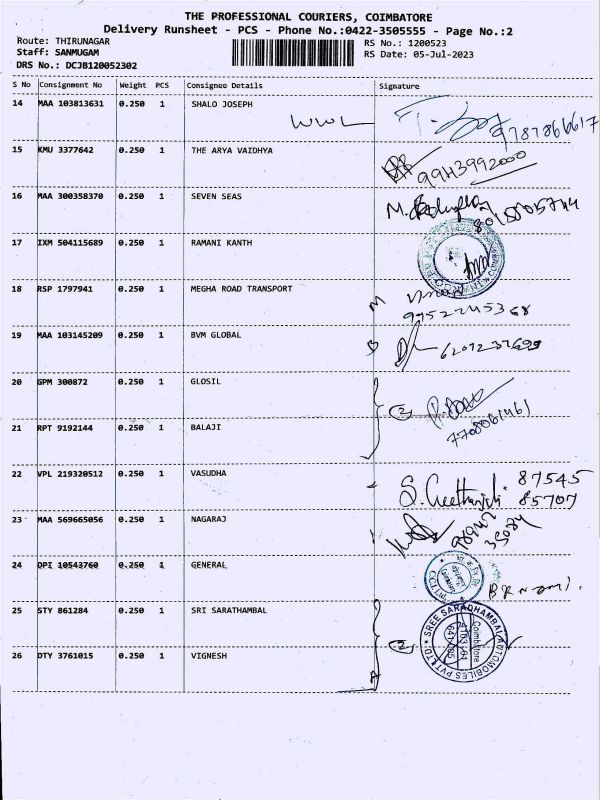 THE PROFESSIONAL COURIERS, COIMBATORE
Delivery Runsheet - PCS - Phone No.:0422-3505555 - Page No.:2
Route: THIRUNAGAR
RS No.: 1200523
Staff: SANMUGAM
RS Date: 05-Jul-2023
DRS No.: DCJB120052302
S No Consignment No Weight PCS Consignee Details Signature
14 MAA 103813631 0.250 1 SHALO JOSEPH
WWL 9787866617
15 KMU 3377642 0.250 1 THE ARYA VAIDHYA
9943992000
16 MAA 300358370 0.250 1 SEVEN SEAS
17 IXM 504115689 0.250 1 RAMANI KANTH
18 RSP 1797941 0.250 1 MEGHA ROAD TRANSPORT
M
19 MAA 103145209 0.250 1 BVM GLOBAL
20 GPM 300872 0.250 1 GLOSIL
2
7708061461
21 RPT 9192144 0.250 1 BALAJI
22 VPL 219320512 0.250 1 VASUDHA
S. Geethanjali 87545
85707
23 MAA 569665056 0.250 1 NAGARAJ
24 DPI 10543760 0.250 1 GENERAL
25 STY 861284 0.250 1 SRI SARATHAMBAL
2
SREE SARADHAMBAL AUTOMOBILES PVT LTD
Coimbatore
26 DTY 3761015 0.250 1 VIGNESH